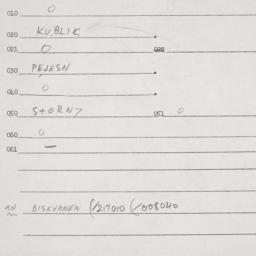 010 0
020 KU,BLIK
021 0 022
030 PEJESN
040 0
050 STORNY 051 0
060 0
061 —
901 BISKVANEN (/217010 (/008040